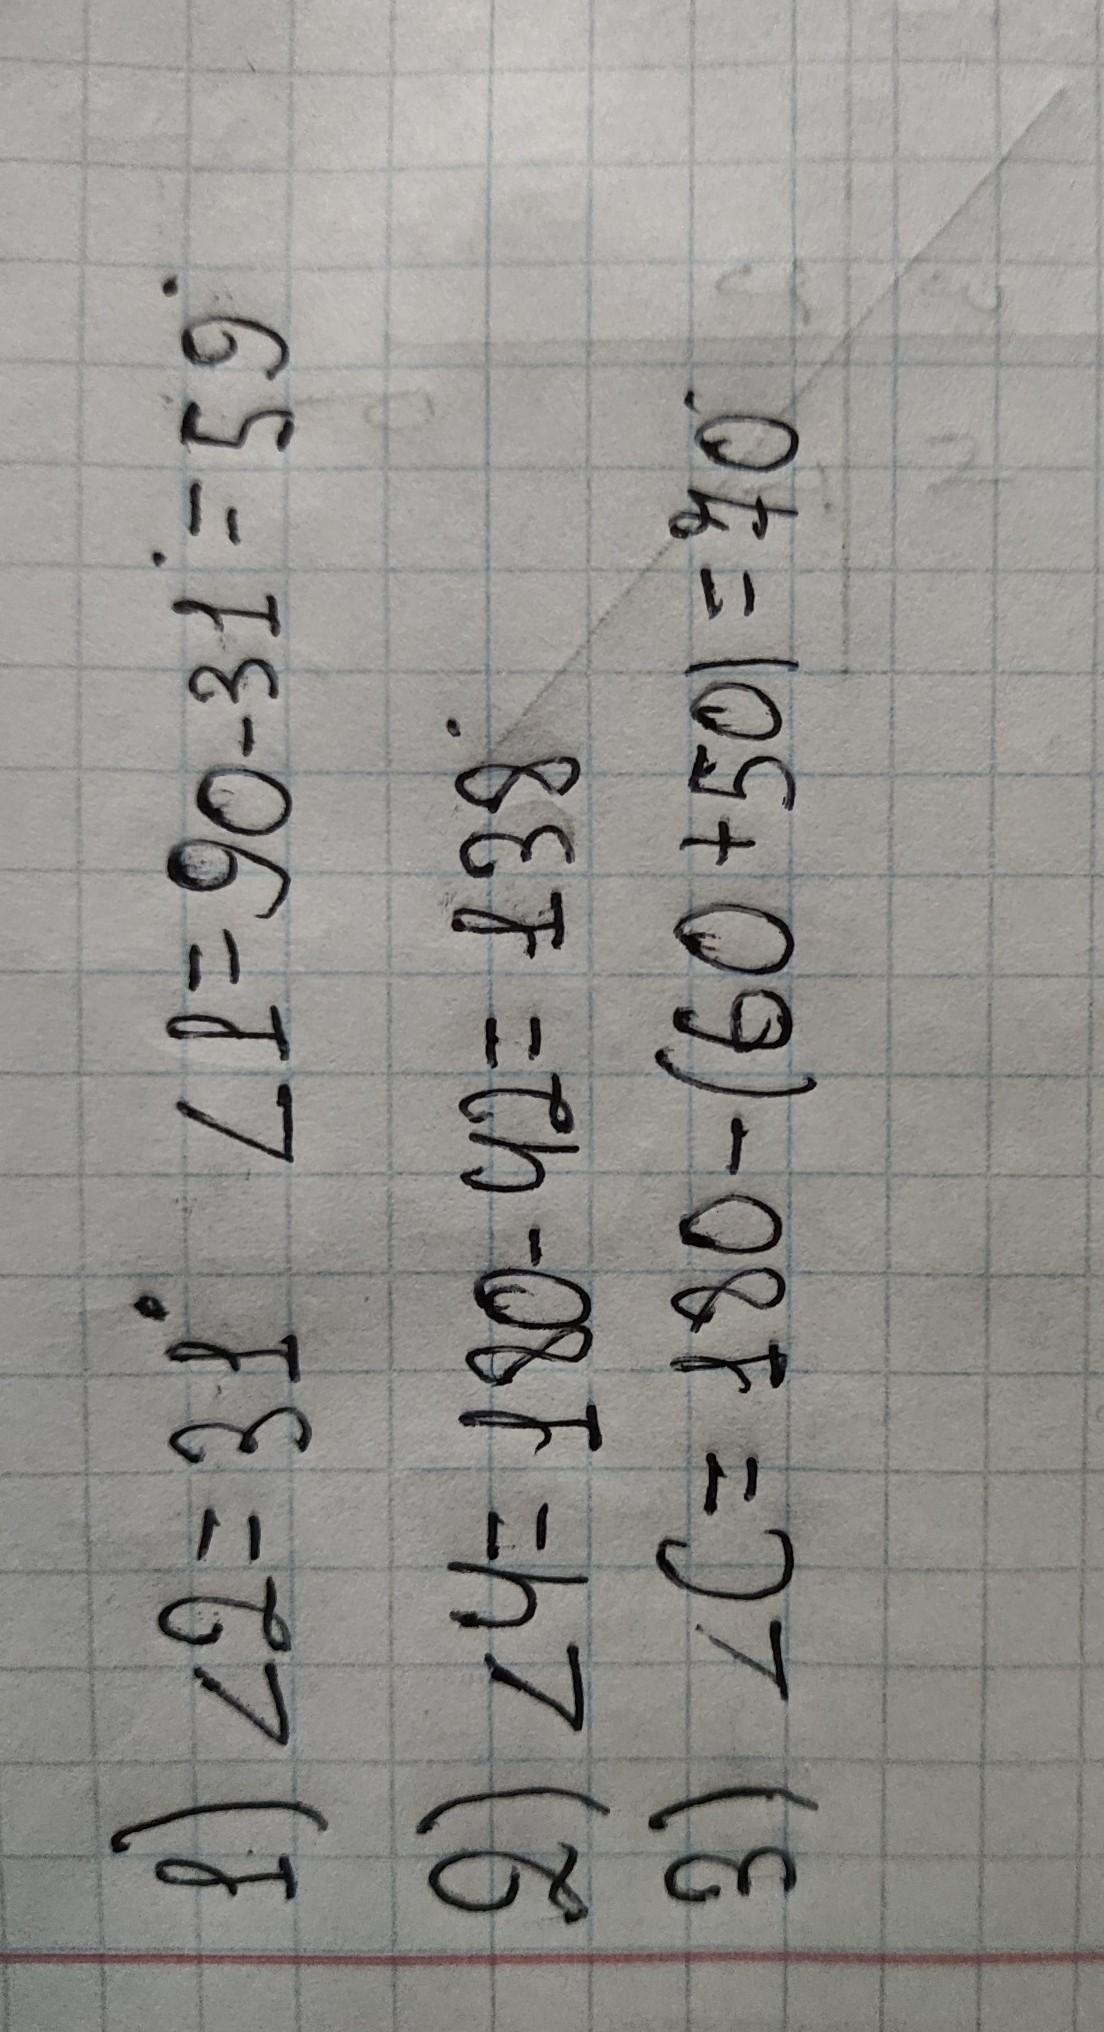 1) ∠2=31° ∠1=90-31°=59°
2) ∠4=180-42=138°
3) ∠C=180-(60+50)=70°